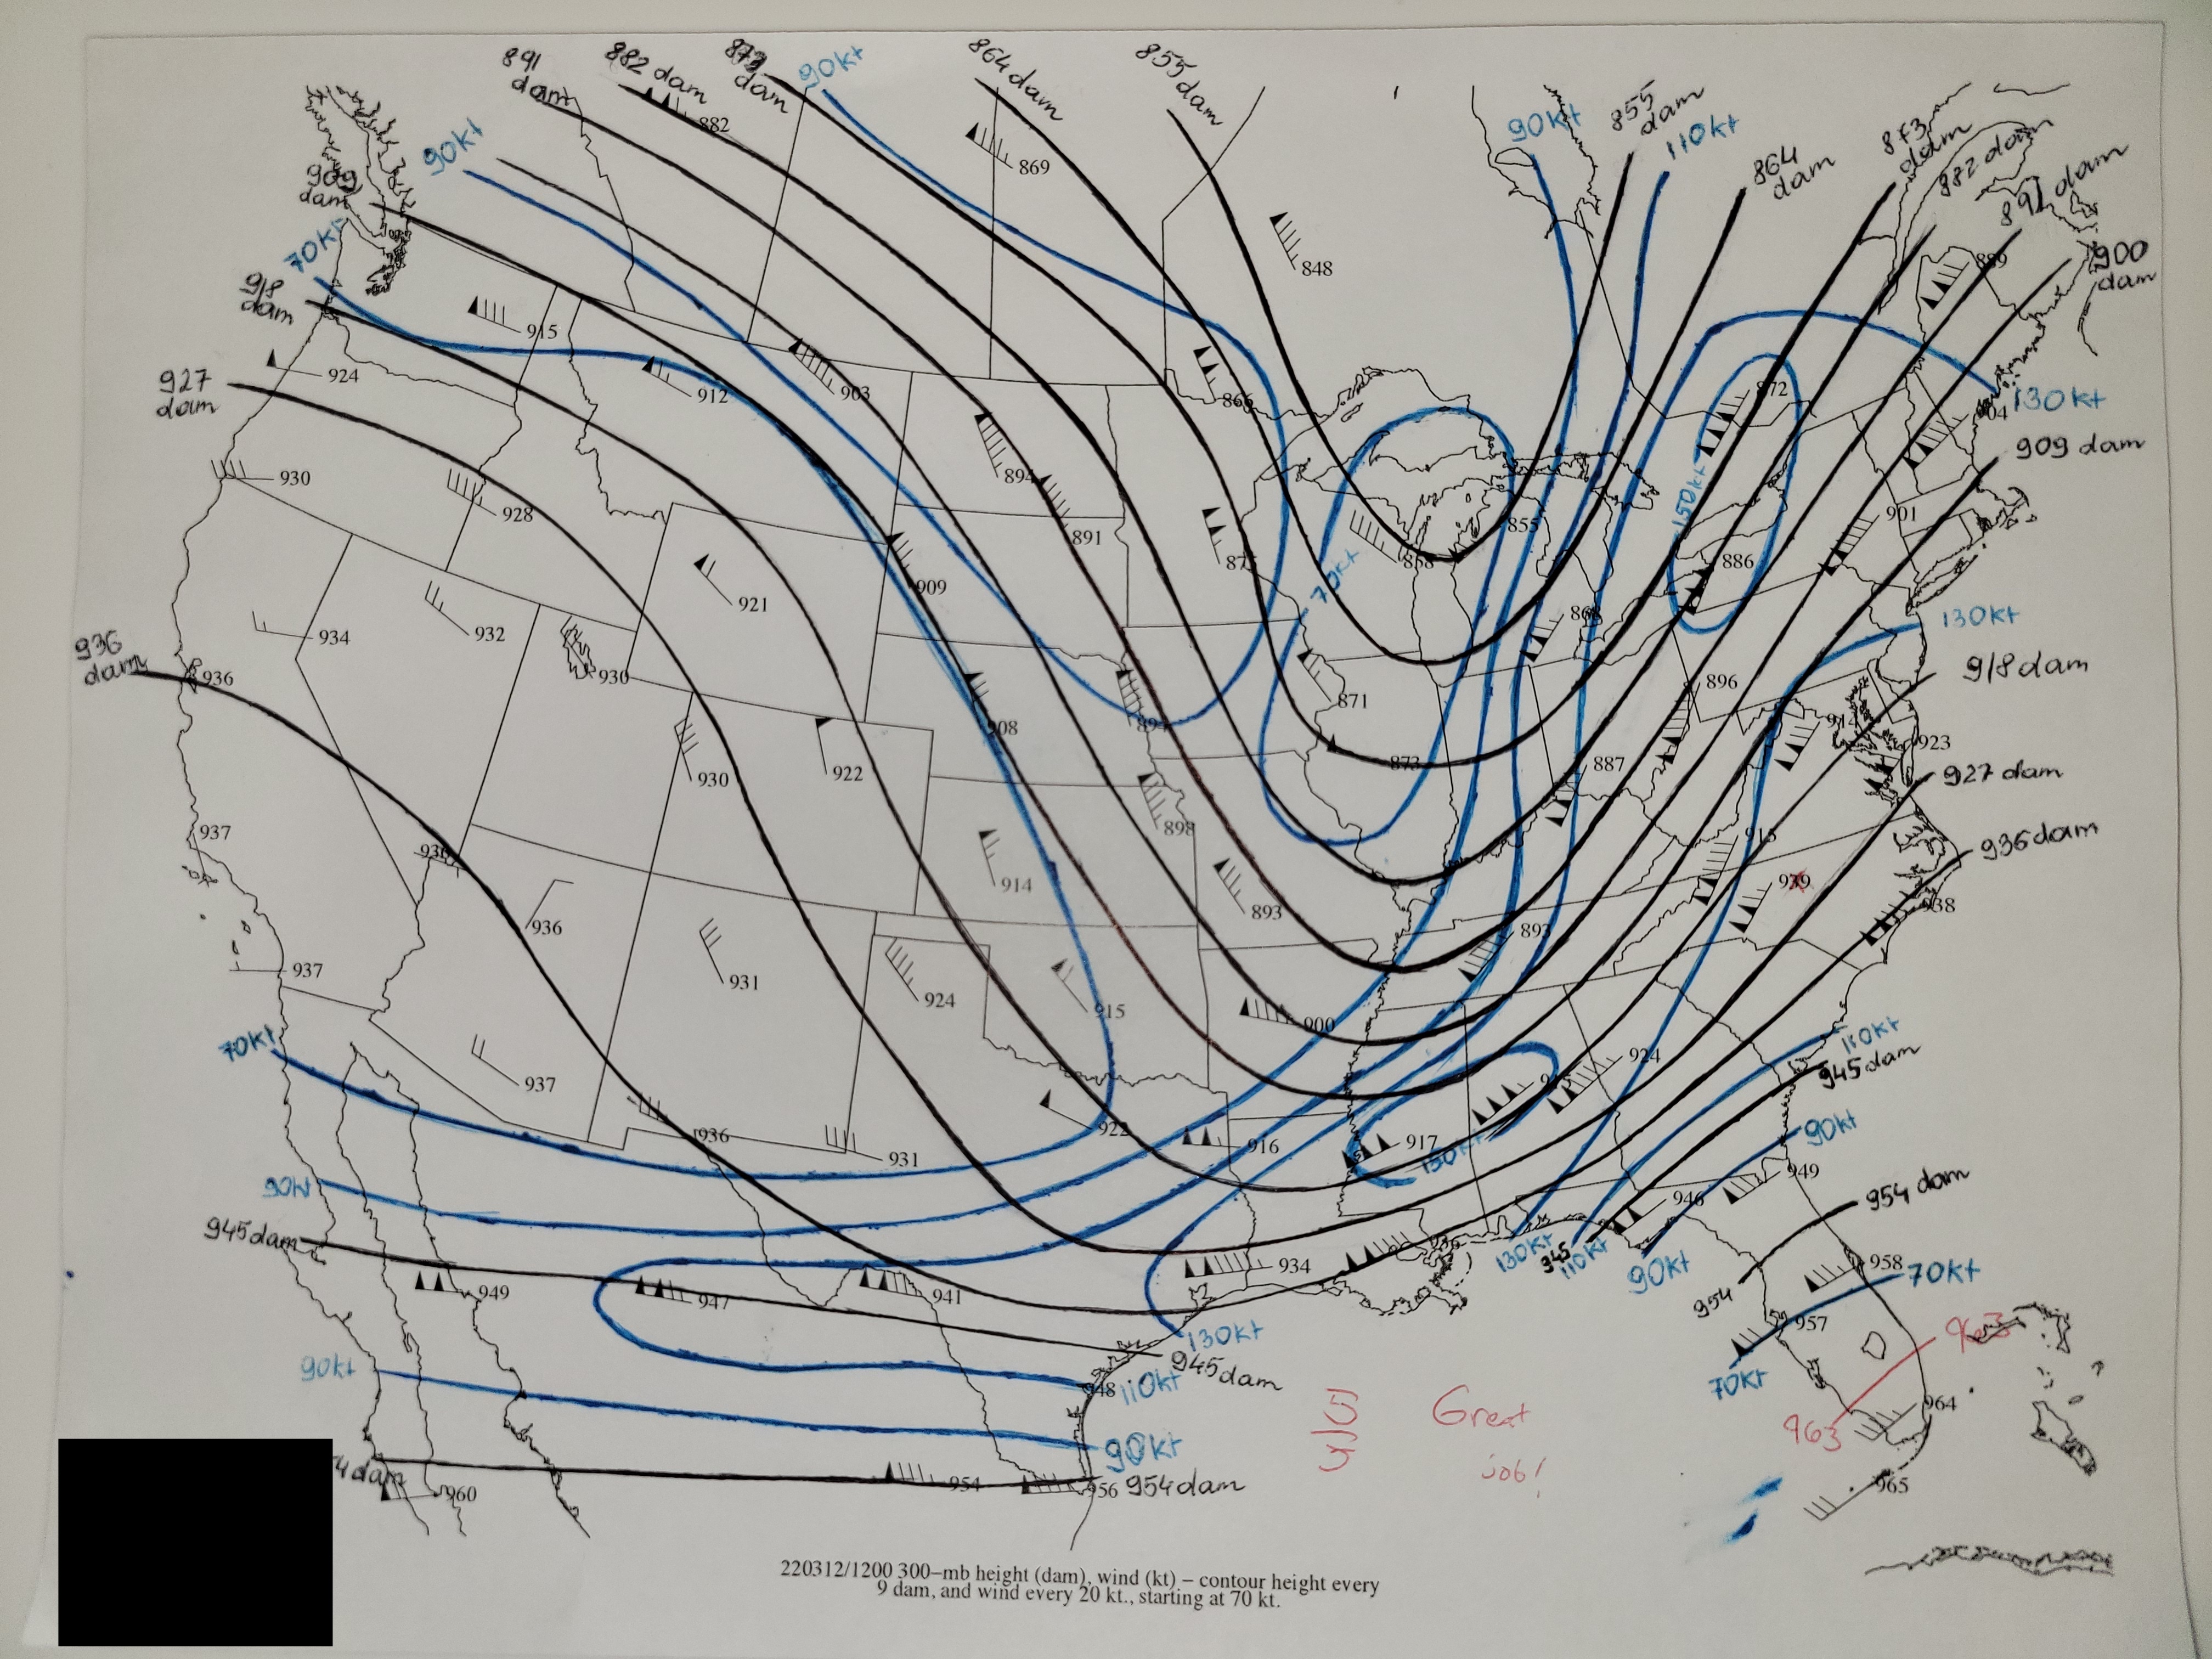 891 dam
882 dam
873 dam
90kt
864 dam
855 dam
90kt
855 dam
110kt
864 dam
873 dam
882 dam
891 dam
900 dam
90kt
909 dam
70kt
918 dam
927 dam
936 dam
882
869
848
889
915
924
912
903
866
872
130kt
909 dam
930
928
894
891
855
150kt
901
921
909
70kt
886
868
130kt
934
932
930
936
871
896
918 dam
908
894
914
923
930
922
873
887
927 dam
937
898
913
936 dam
914
939
938
936
893
893
937
931
924
915
900
70kt
937
924
110kt
945 dam
936
931
922
916
917
130kt
90kt
949
946
954 dam
90kt
945 dam
949
947
941
934
130kt
945
110kt
90kt
954
958
70kt
957
70kt
963
130kt
945 dam
948
110kt
90kt
90kt
5/5
Great
job!
963
964
960
954
956
954 dam
965
220312/1200 300–mb height (dam), wind (kt) – contour height every
9 dam, and wind every 20 kt., starting at 70 kt.